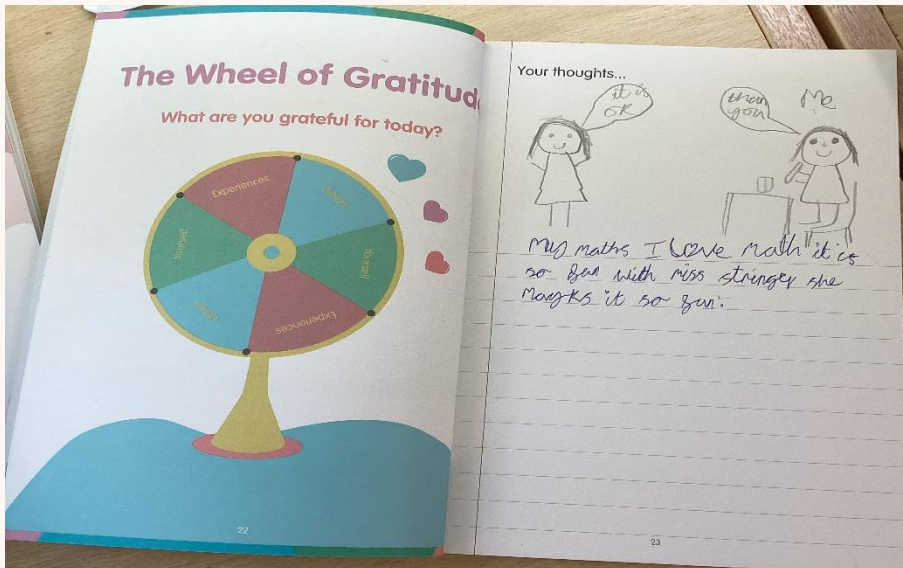 The Wheel of Gratitud
What are you grateful for today?
Experiences
Others
Yourself
Yourself
Others
Experiences
22
Your thoughts...
it is
OK
than
you
Me
My maths I Love math it is
so fun with miss stringer she
Maryks it so fun.
23